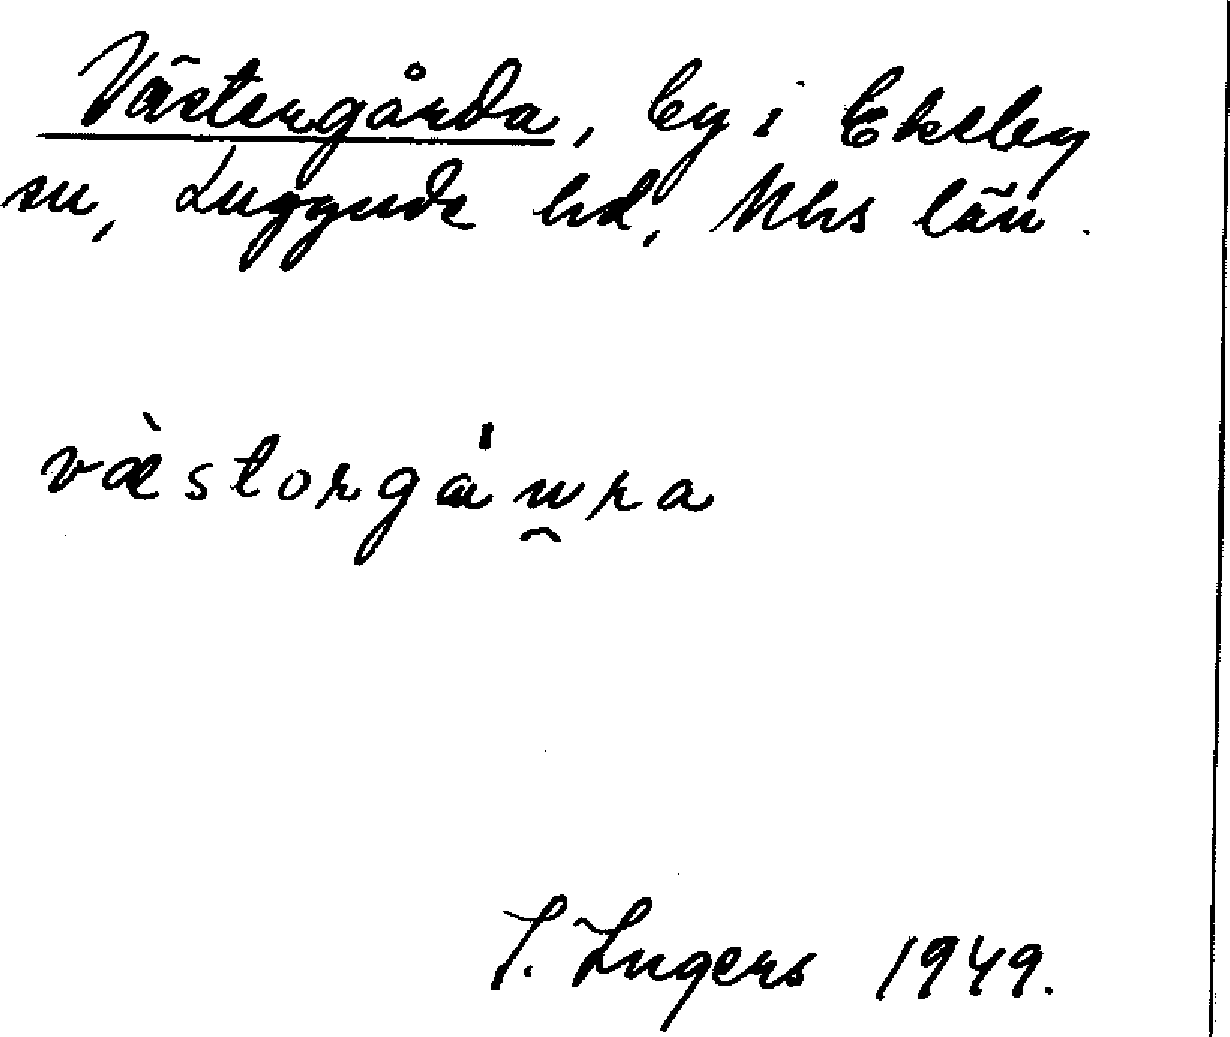 Västergårda, by i Ekeby
sn, Luggude hd, Mhs län.
væ̀storgɑ́u̯ra
I. Ingers 1949.